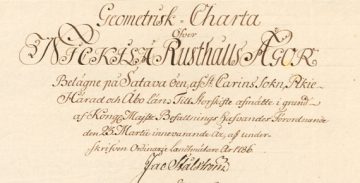 Geometrisk Charta
öfver
NÄCKILÄ Rusthålls ÄGOR
Belägne på Satava Öen, af St Carins Sokn, Pikie-
Härad och Åbo län. Till Storskifte afmätte i grund
af Konge Majts Befallnings Hafvandes Förordnande
den 23 Martii innevarande År, af under
skrifven Ordinarie Landtmätare År 1786.
Jac Stålström